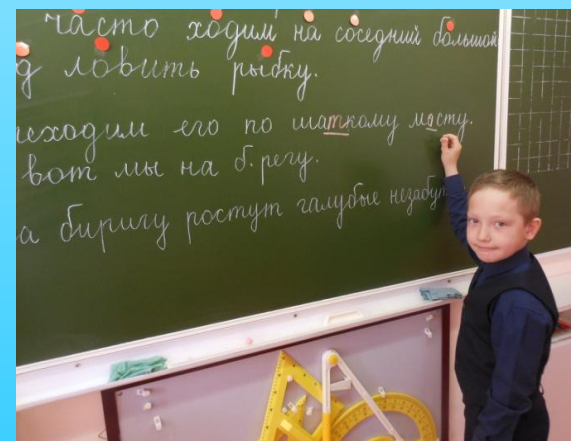 часто ходим на соседний большой
д ловить рыбку.
еходим его по шаткому мосту.
вот мы на б.регу.
а биригу ростут галубые незабу